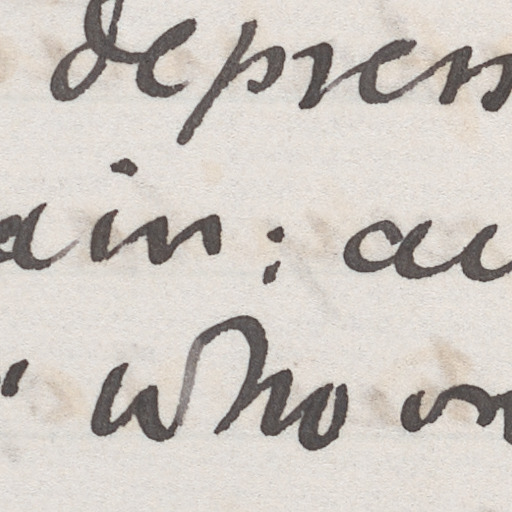 depress
ain; au
" who on